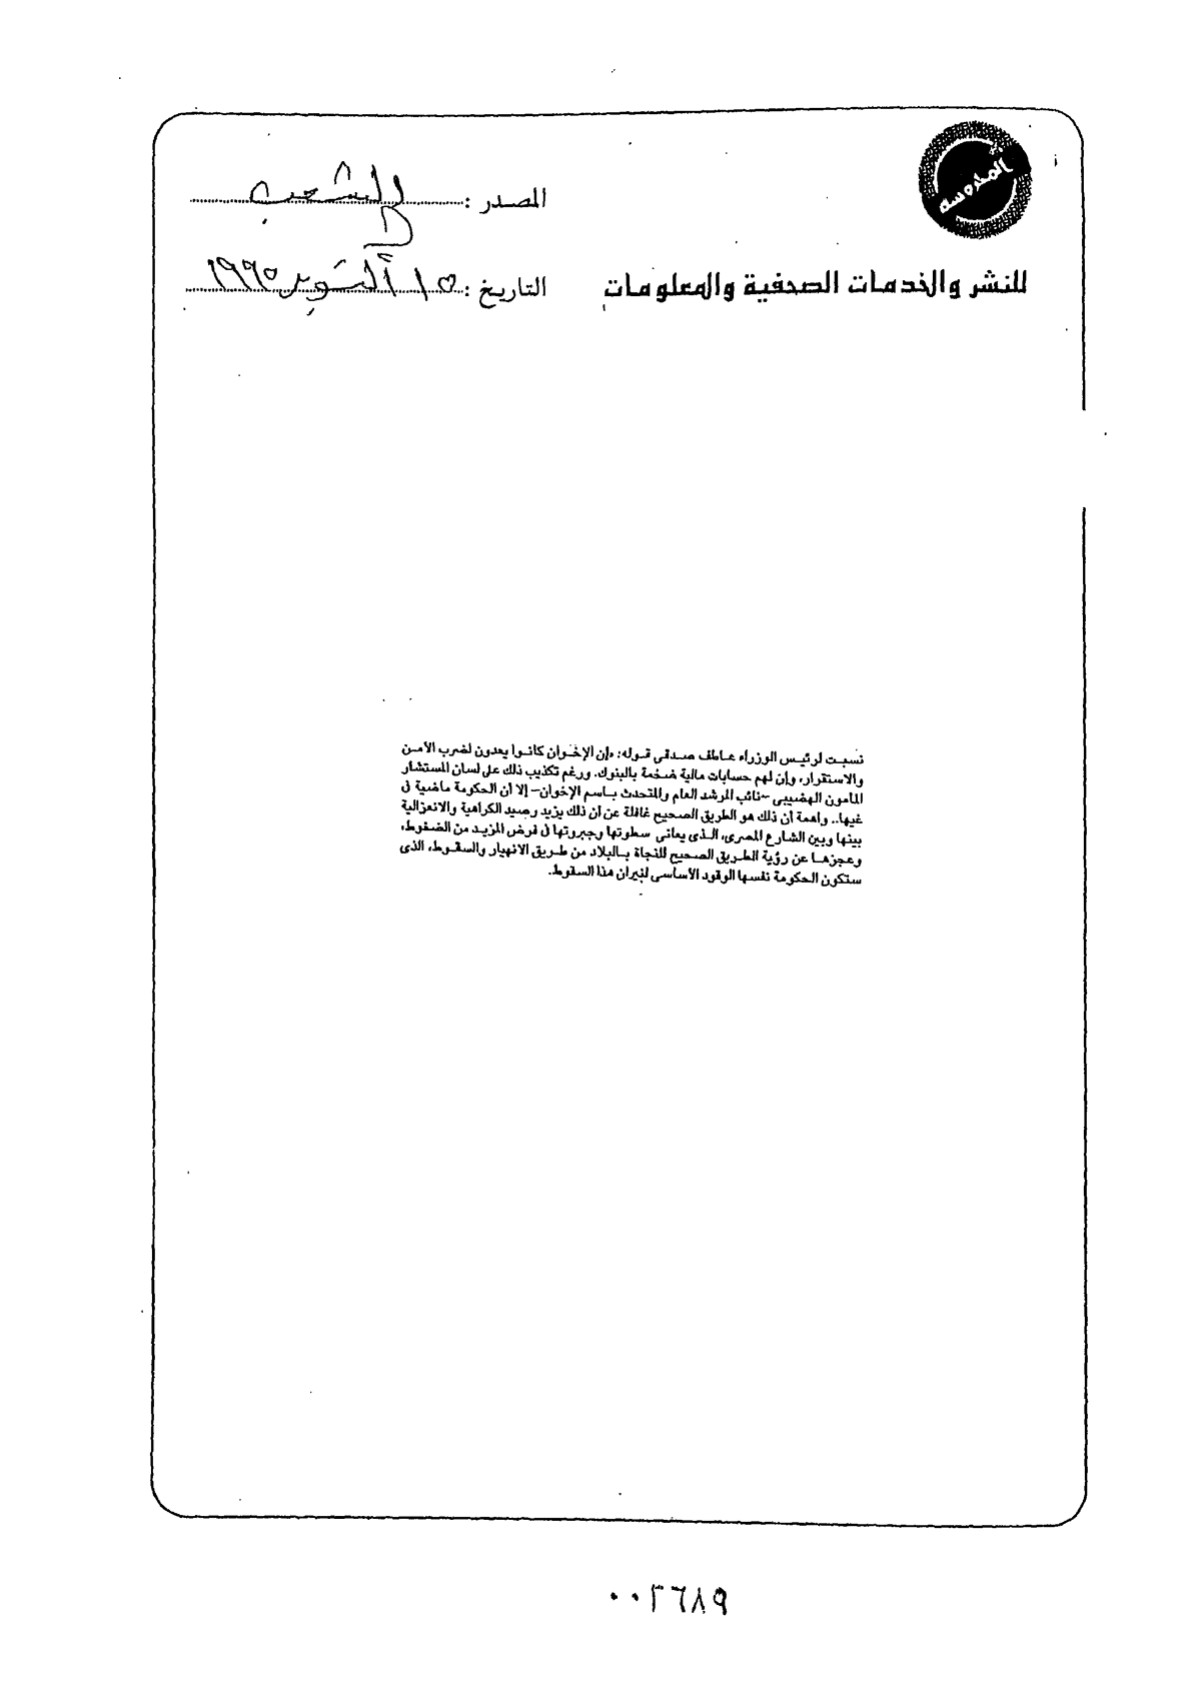 المحروسة
المصدر : الشعب
للنشر والخدمات الصحفية والمعلومات
التاريخ : ١٥ أكتوبر ١٩٩٥
نسبت لرئيس الوزراء عاطف صدقى قوله: «إن الإخوان كانوا يعدون لضرب الأمن
والاستقرار، وإن لهم حسابات مالية ضخمة بالبنوك. ورغم تكذيب ذلك على لسان المستشار
المأمون الهضيبى -نائب المرشد العام والمتحدث باسم الإخوان- إلا أن الحكومة ماضية فى
غيها.. واهمة أن ذلك هو الطريق الصحيح غافلة عن أن ذلك يزيد رصيد الكراهية والانعزالية
بينها وبين الشارع المصرى، الذى يعانى سطوتها وجبروتها فى فرض المزيد من الضغوط،
وعجزها عن رؤية الطريق الصحيح للنجاة بالبلاد من طريق الانهيار والسقوط، الذى
ستكون الحكومة نفسها الوقود الأساسى لنيران هذا السقوط.
٠٠٢٦٨٩